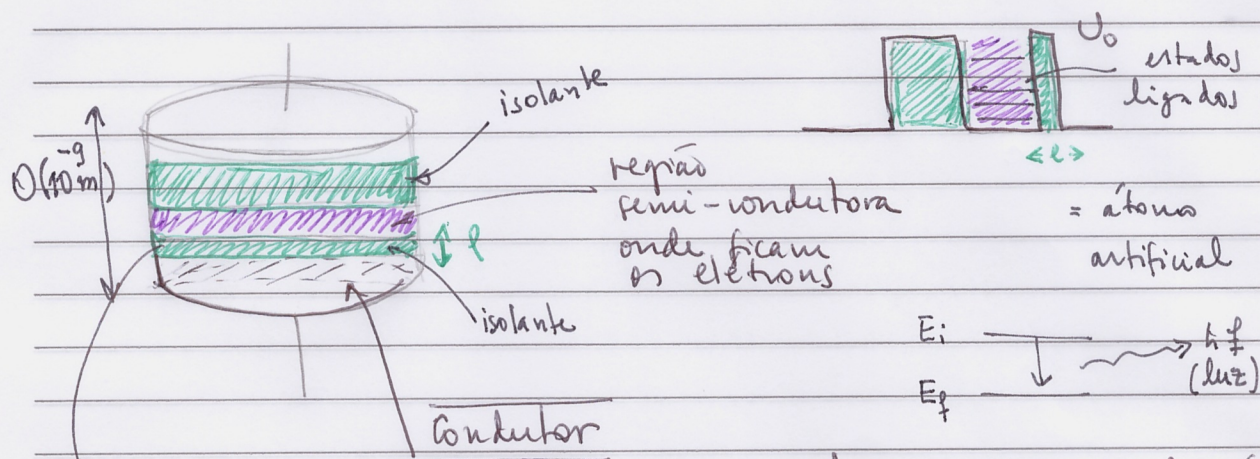 isolante
O(10⁻⁹m)
região
semi-condutora
onde ficam
os elétrons
ℓ
isolante
Condutor
U₀
estados
ligados
ℓ
= átomo
artificial
Eᵢ
E_f
hf
(luz)